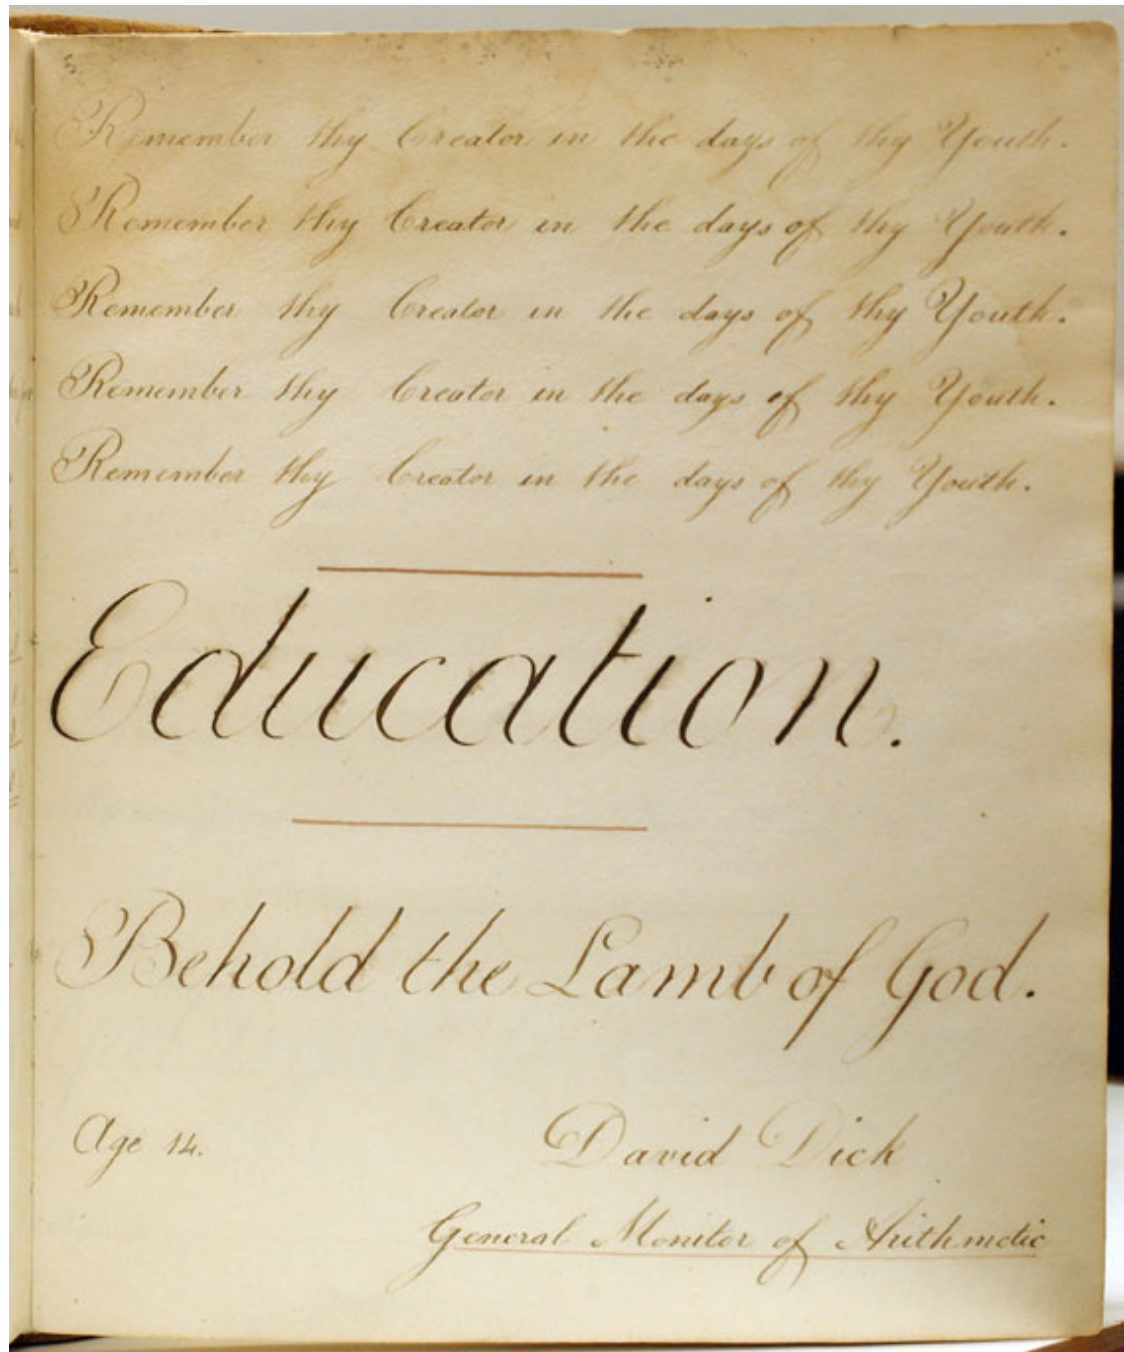 Remember thy Creator in the days of thy Youth.
Remember thy Creator in the days of thy Youth.
Remember thy Creator in the days of thy Youth.
Remember thy Creator in the days of thy Youth.
Remember thy Creator in the days of thy Youth.
Education.
Behold the Lamb of God.
Age 14. David Dick
General Monitor of Arithmetic